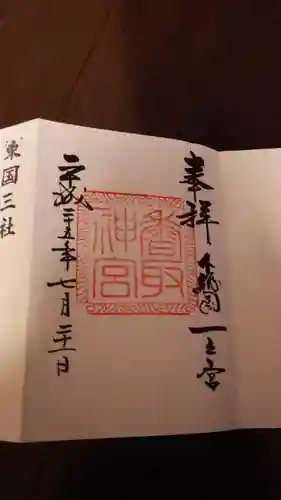 奉拝 下総国一之宮
香取
神宮
平成二十五年七月二十一日
東国三社